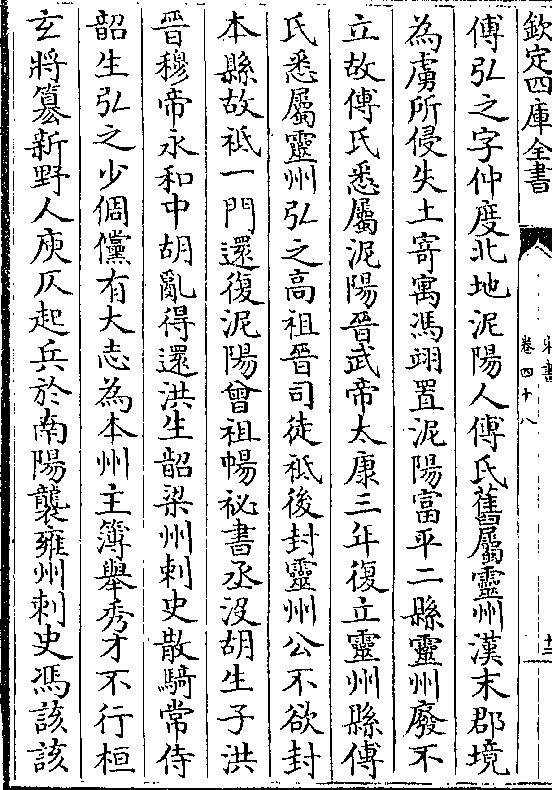 欽定四庫全書
宋書
卷四十八
傅弘之字仲度北地泥陽人傅氏舊屬靈州漢末郡境
為虜所侵失土寄寓馮翊置泥陽富平二縣靈州廢不
立故傅氏悉屬泥陽晉武帝太康三年復立靈州縣傅
氏悉屬靈州弘之高祖晉司徒祗後封靈州公不欲封
本縣故祗一門還復泥陽曾祖暢祕書丞沒胡生子洪
晉穆帝永和中胡亂得還洪生韶梁州刺史散騎常侍
韶生弘之少倜儻有大志為本州主簿舉秀才不行桓
玄將簒新野人庾仄起兵於南陽襲雍州刺史馮該該